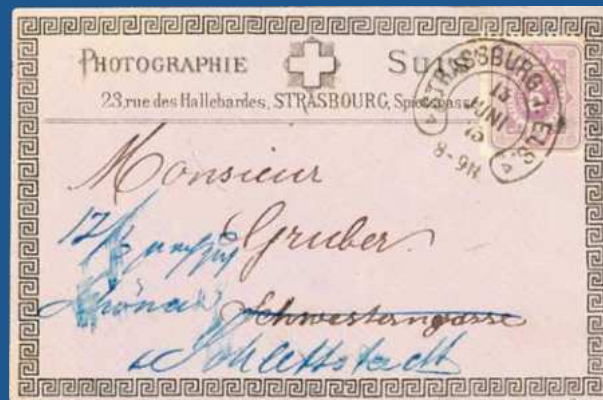 PHOTOGRAPHIE
23, rue des Hallebardes, STRASBOURG,
STRASSBURG
13
JUNI
8-9N
Monsieur
Gruber
Schwesterngasse
Schlettstadt